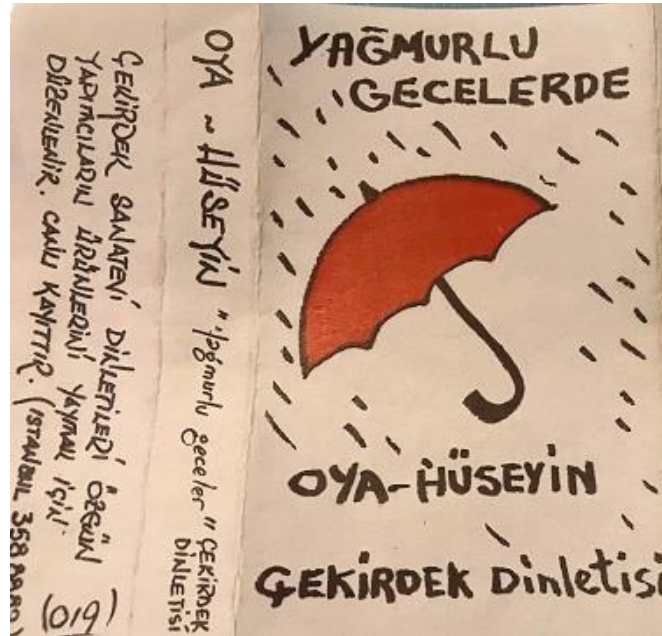 YAĞMURLU
GECELERDE
OYA-HÜSEYİN
ÇEKİRDEK Dinletisi
OYA ~ HÜSEYİN "Yağmurlu geceler" ÇEKİRDEK
DİNLETİSİ
ÇEKİRDEK SANATEVİ DİNLETİLERİ ÖZGÜN
YAPITÇILARIN ÜRÜNLERİNİ YAYMAK İÇİN
DÜZENLENİR. CANLI KAYITTIR. (İSTANBUL 358
(019)